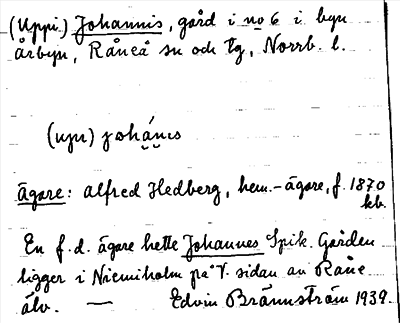 (Uppi) Johannis, gård i no 6 i byn
Årbyn, Råneå sn och tg, Norrb. l.
(upn) johánes
Ägare: Alfred Hedberg, hem.-ägare, f. 1870
kb.
En f.d. ägare hette Johannes Spik. Gården
ligger i Niemiholm på V. sidan av Råne
älv. — Edvin Brännström 1939.